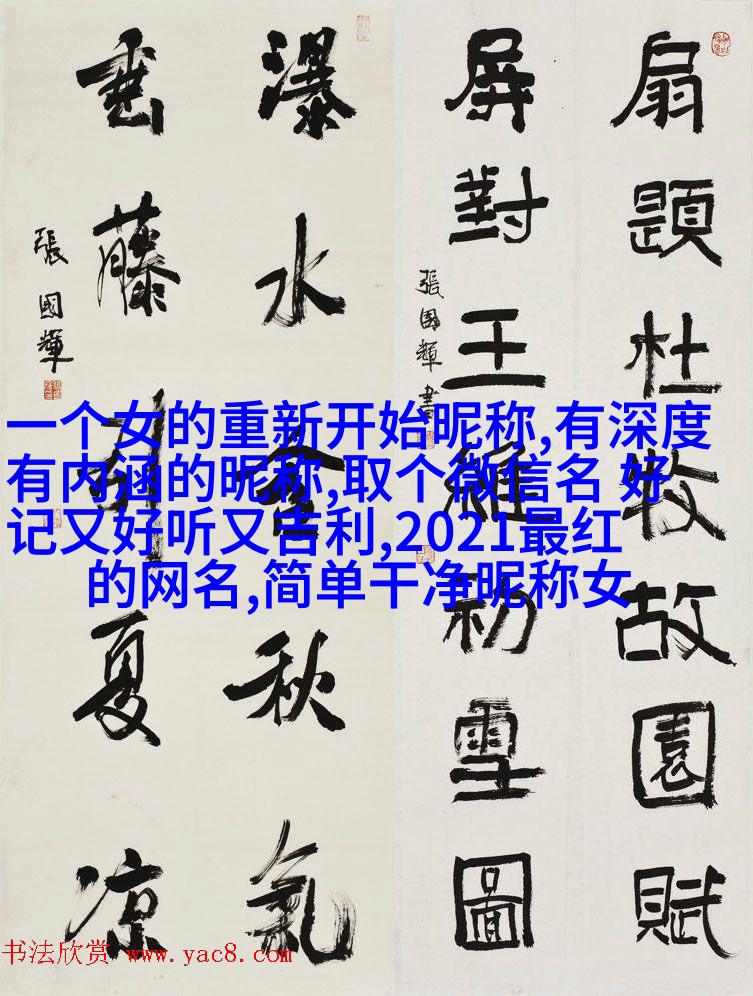 扇題杜牧故園賦
屏對王維初雪圖
張國輝書
瀑水含秋氣
垂藤引夏凉
張國輝
一个女的重新开始昵称,有深度
有内涵的昵称,取个微信名 好
记又好听又吉利,2021最红
的网名,简单干净昵称女
书法欣赏 www.yac8.com